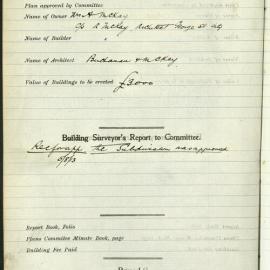 Plan approved by Committee
Name of Owner Mrs A McKay
A McKay Architect
Name of Builder "
Name of Architect Buchanan & McKay
Value of Buildings to be erected £3000
Building Surveyor's Report to Committee.
the Subdivision was approved
Report Book, Folio
Plans Committee Minute Book, page
Building Fee Paid